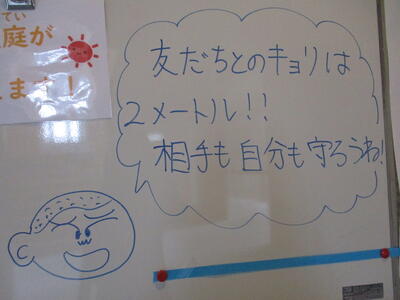 てい
庭が
ます!
友だちとのキョリは
2メートル!!
相手も自分も守ろうね!